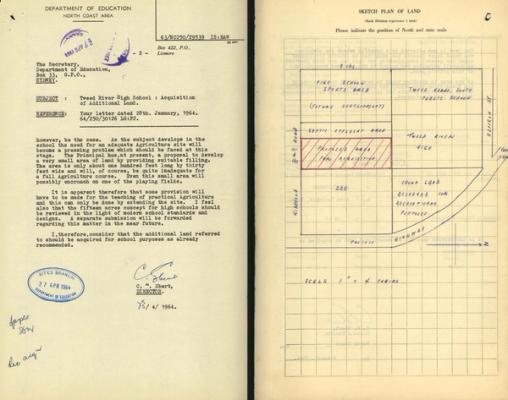 DEPARTMENT OF EDUCATION
NORTH COAST AREA
- 2 -
Box 422, P.O.
Lismore
The Secretary,
Department of Education,
Box 33, G.P.O.,
SYDNEY.
SUBJECT : Tweed River High School : Acquisition
of Additional Land.
REFERENCE: Your letter dated 28th. January, 1964.
however, be the case. As the subject develops in the
school the need for an adequate Agriculture site will
become a pressing problem which should be faced at this
stage. The Principal has,at present, a proposal to develop
a very small area of land by providing suitable filling.
The area is only about one hundred feet long by forty
feet wide and will, of course, be quite inadequate for
a full Agriculture course. Even this small area will
possibly encroach on one of the playing fields.
It is apparent therefore that some provision will
have to be made for the teaching of practical Agriculture
and this can only be done by extending the site. I feel
also that the fifteen acre concept for high schools should
be reviewed in the light of modern school standards and
designs. A separate submission will be forwarded
regarding this matter in the near future.
I,therefore,consider that the additional land referred
to should be acquired for school purposes as already
recommended.
C. Ebert
DIRECTOR.
/4/ 1964.
SITES BRANCH
27 APR 1964
DEPARTMENT OF EDUCATION
SKETCH PLAN OF LAND
(Each Division represents 1 inch)
Please indicate the position of North and state scale
HIGH SCHOOL
SPORTS AREA
(FUTURE DEVELOPMENT)
TWEED HEADS SOUTH
PUBLIC SCHOOL
SEPTIC EFFLUENT AREA
PROPOSED AREA
FOR ACQUISITION
TWEED RIVER
HIGH
CROWN LAND
RESERVED FOR
RECREATIONAL
PURPOSES
PACIFIC
HIGHWAY
N
SCALE 1" = 4 CHAINS